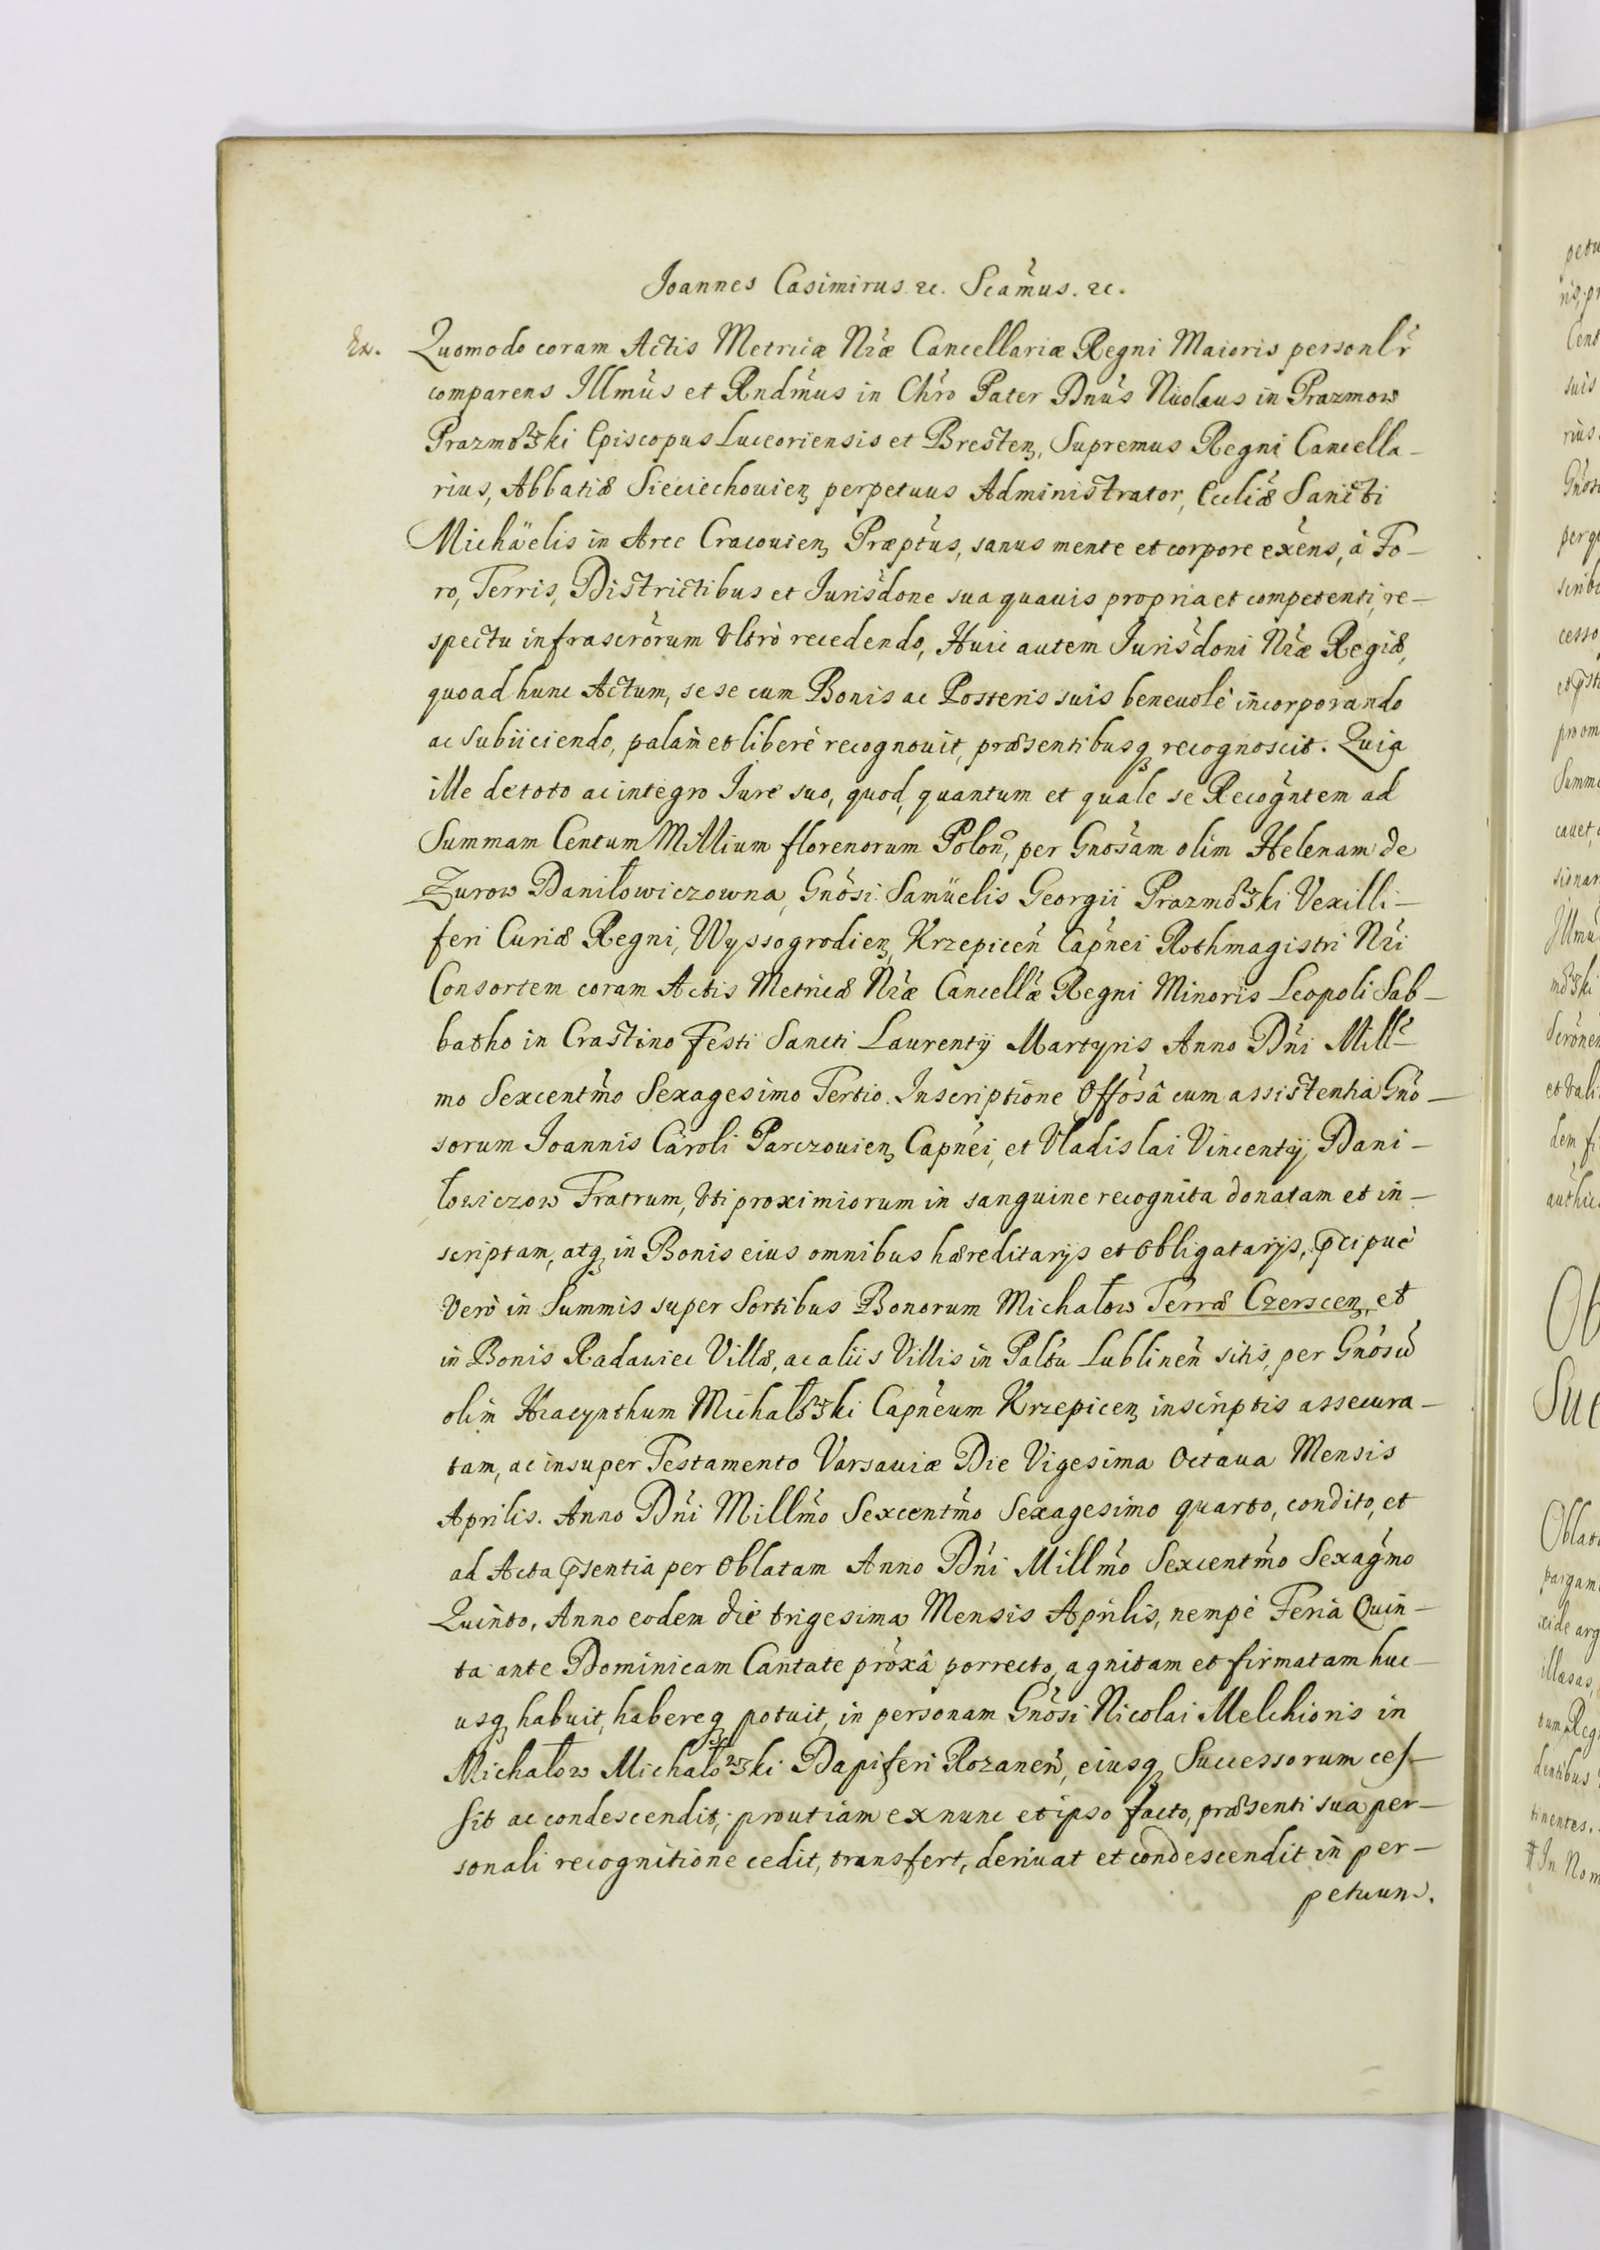 Joannes Casimirus. &c. Scamus. &c.
Ex. Quomodo coram Actis Metricæ Nræ Cancellariæ Regni Maioris personlr
comparens Illmus et Rndmus in Chro Pater Dnus Nicolaus in Prazmow
Prazmowski Episcopus Luceoriensis et Bresten, Supremus Regni Cancella-
rius, Abbatiæ Sieciechouien perpetuus Administrator, Ecclíæ Sancti
Michäelis in Arce Cracouien Præptus, sanus mente et corpore exens, à Fo-
ro, Terris, Districtibus et Jurisdone sua quauis propria et competenti, re-
spectu infrascrorum Vltrò recedendo, Huic autem Jurisdoni Nræ Regiæ,
quoad hunc Actum, se se cum Bonis ac Posteris suis beneuolè incorporando
ac subiiciendo, palam et liberè recognouit, præsentibusq recognoscit. Quia
ille de toto ac integro Jure suo, quod, quantum et quale se Recogntem ad
Summam Centum Millium florenorum Polon, per Gnosam olim Helenam de
Zurow Daniłowiczowna, Gnosi Samüelis Georgii Prazmowski Vexilli-
feri Curiæ Regni, Wyssogrodien, Krzepicen Capnei Rothmagistri Nri
Consortem coram Actis Metricæ Nræ Cancellæ Regni Minoris Leopoli Sab-
batho in Crastino Festi Sancti Laurentÿ Martyris Anno Dni Mill-
mo Sexcentmo Sexagesimo Tertio. Inscriptione Offosâ cum assistentia Gno-
sorum Joannis Caroli Parczouien Capnei, et Vladislai Vincentÿ Dani-
łowiczow Fratrum, Vti proximiorum in sanguine recognita donatam et in-
scriptam, atq in Bonis eius omnibus hæreditarÿs et obligatarÿs, pcipuè
Verò in Summis super Sortibus Bonorum Michałow Terræ Czerscen, et
in Bonis Radawiec Villæ, ac aliis Villis in Paltu Lublinen sitis, per Gnosu
olim Hiacynthum Michałowski Capneum Krzepicen inscriptis assecura-
tam, ac insuper Testamento Varsauiæ Die Vigesima Octaua Mensis
Aprilis. Anno Dni Millmo Sexcentmo Sexagesimo quarto, condito, et
ad Acta psentia per Oblatam Anno Dni Millmo Sexcentmo Sexagmo
Quinto, Anno eodem die trigesima Mensis Aprilis, nempè Feria Quin-
ta ante Dominicam Cantate proxâ porrecto, agnitam et firmatam huc-
usq habuit, habereq potuit, in personam Gnosi Nicolai Melchioris in
Michałow Michałowski Dapiferi Rozanen, eiusq Successorum ces-
sit ac condescendit, prout iam ex nunc et ipso facto, præsenti sua per-
sonali recognitione cedit, transfert, deriuat et condescendit in per-
petuum.